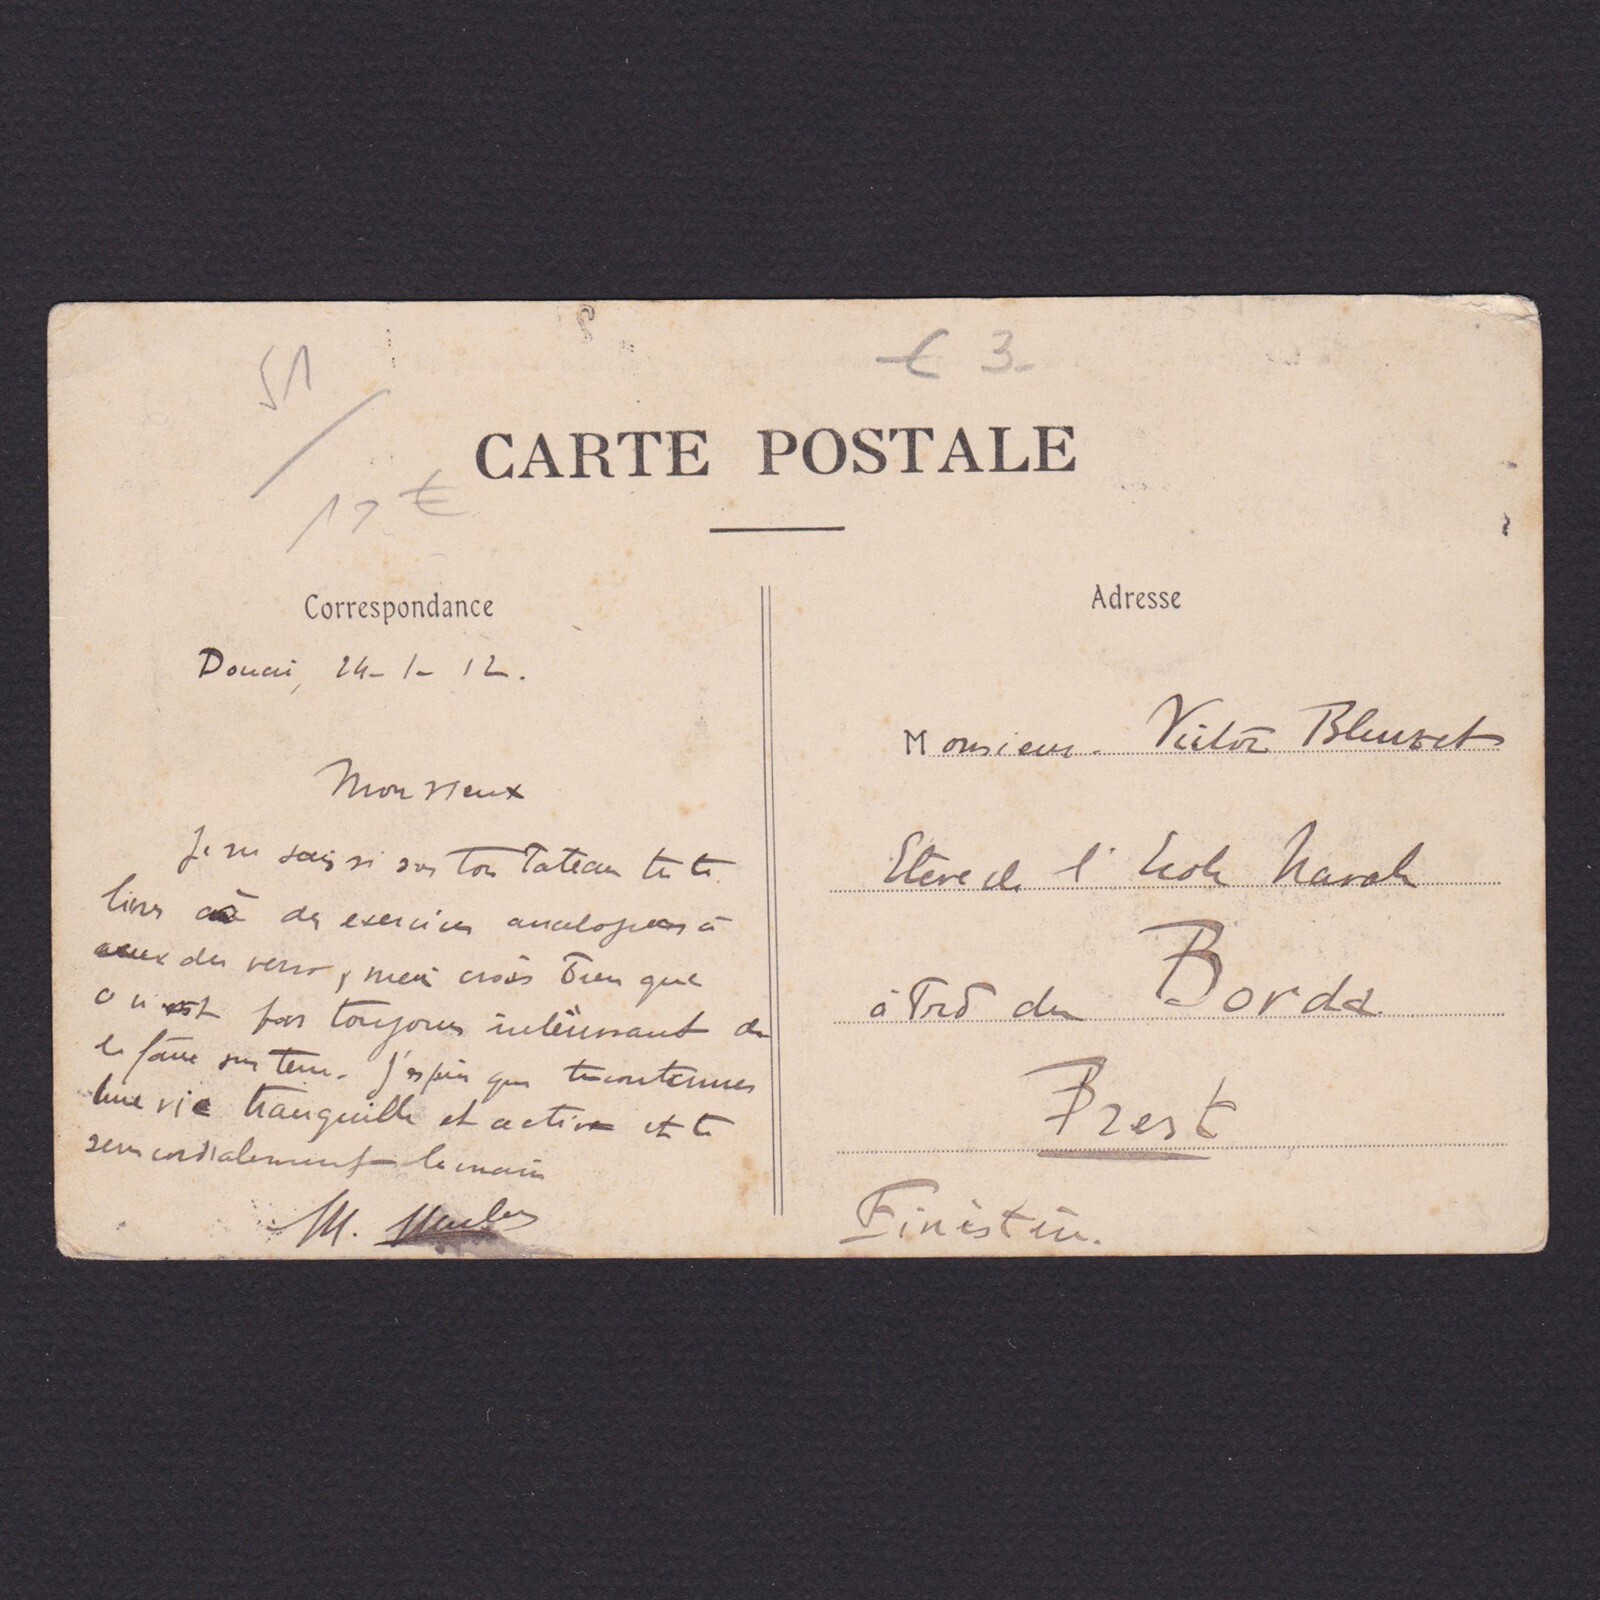 51
€ 3-
CARTE POSTALE
17 €
Correspondance
Adresse
Douai, 24-1-12.
Mon vieux
Je ne sais si sur ton bateau tu te
livres à des exercices analogues à
ceux du verso, mais crois bien que
ce n'est pas toujours intéressant de
le faire sur terre. J'espère que tu continues
une vie tranquille et active et te
serre cordialement la main
M.
Monsieur Victor
Elève de l'Ecole Navale
à bord du Borda
Brest
Finistère.